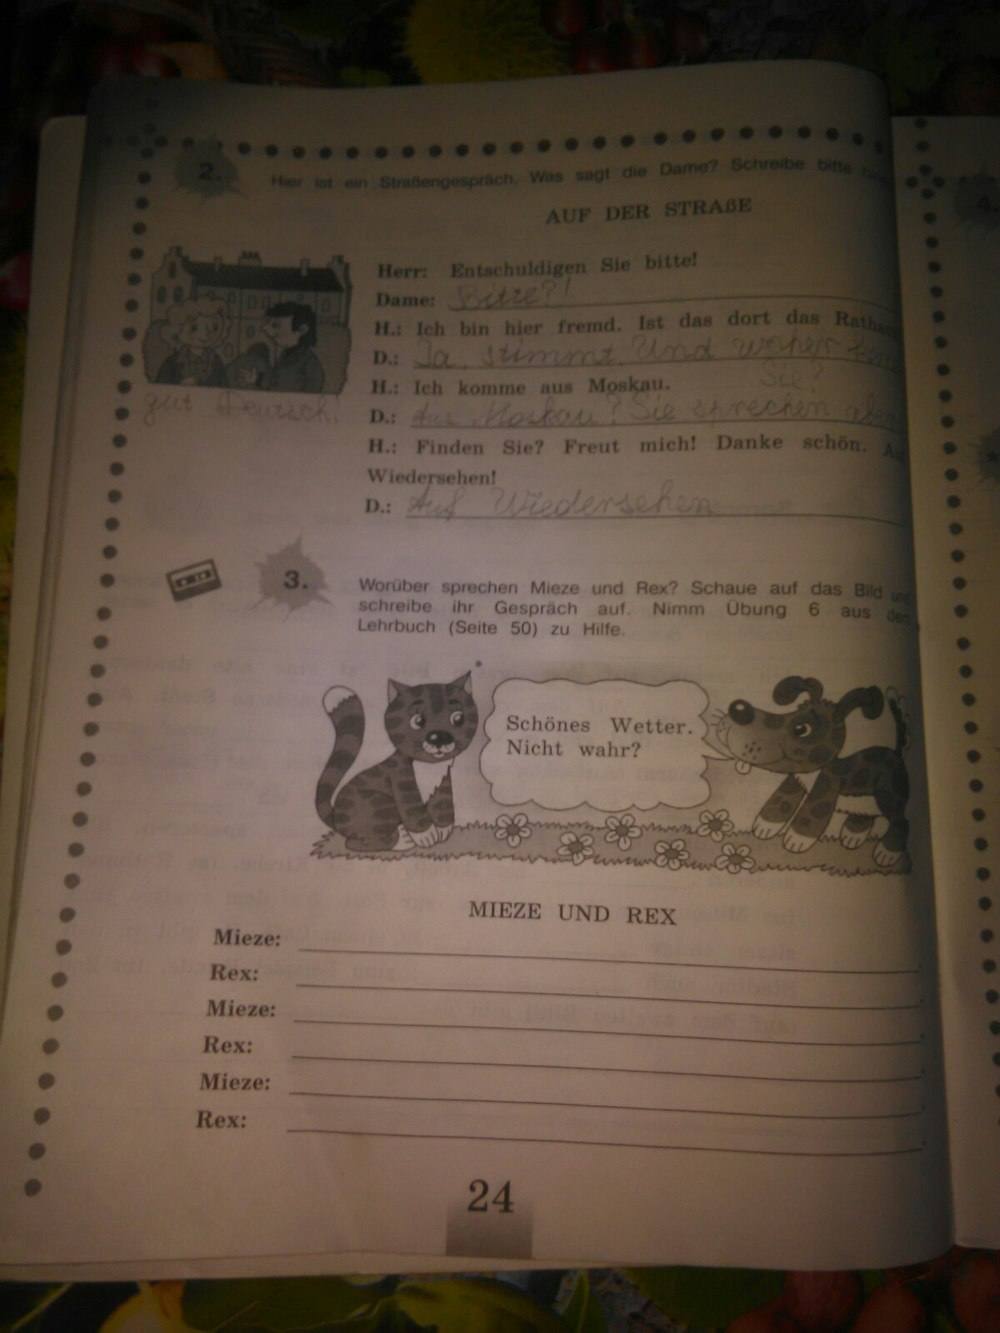 2.
Hier ist ein Straßengespräch. Was sagt die Dame? Schreibe bitte
AUF DER STRAßE
Herr: Entschuldigen Sie bitte!
Dame: Bitte?!
H.: Ich bin hier fremd. Ist das dort das
D.: Ja, stimmt. Und woher
Sie?
H.: Ich komme aus Moskau.
D.: Aus Moskau? Sie sprechen aber
gut Deutsch!
H.: Finden Sie? Freut mich! Danke schön.
Wiedersehen!
D.: Auf Wiedersehen
3.
Worüber sprechen Mieze und Rex? Schaue auf das Bild
schreibe ihr Gespräch auf. Nimm Übung 6 aus
Lehrbuch (Seite 50) zu Hilfe.
Schönes Wetter.
Nicht wahr?
MIEZE UND REX
Mieze:
Rex:
Mieze:
Rex:
Mieze:
Rex:
24
4.